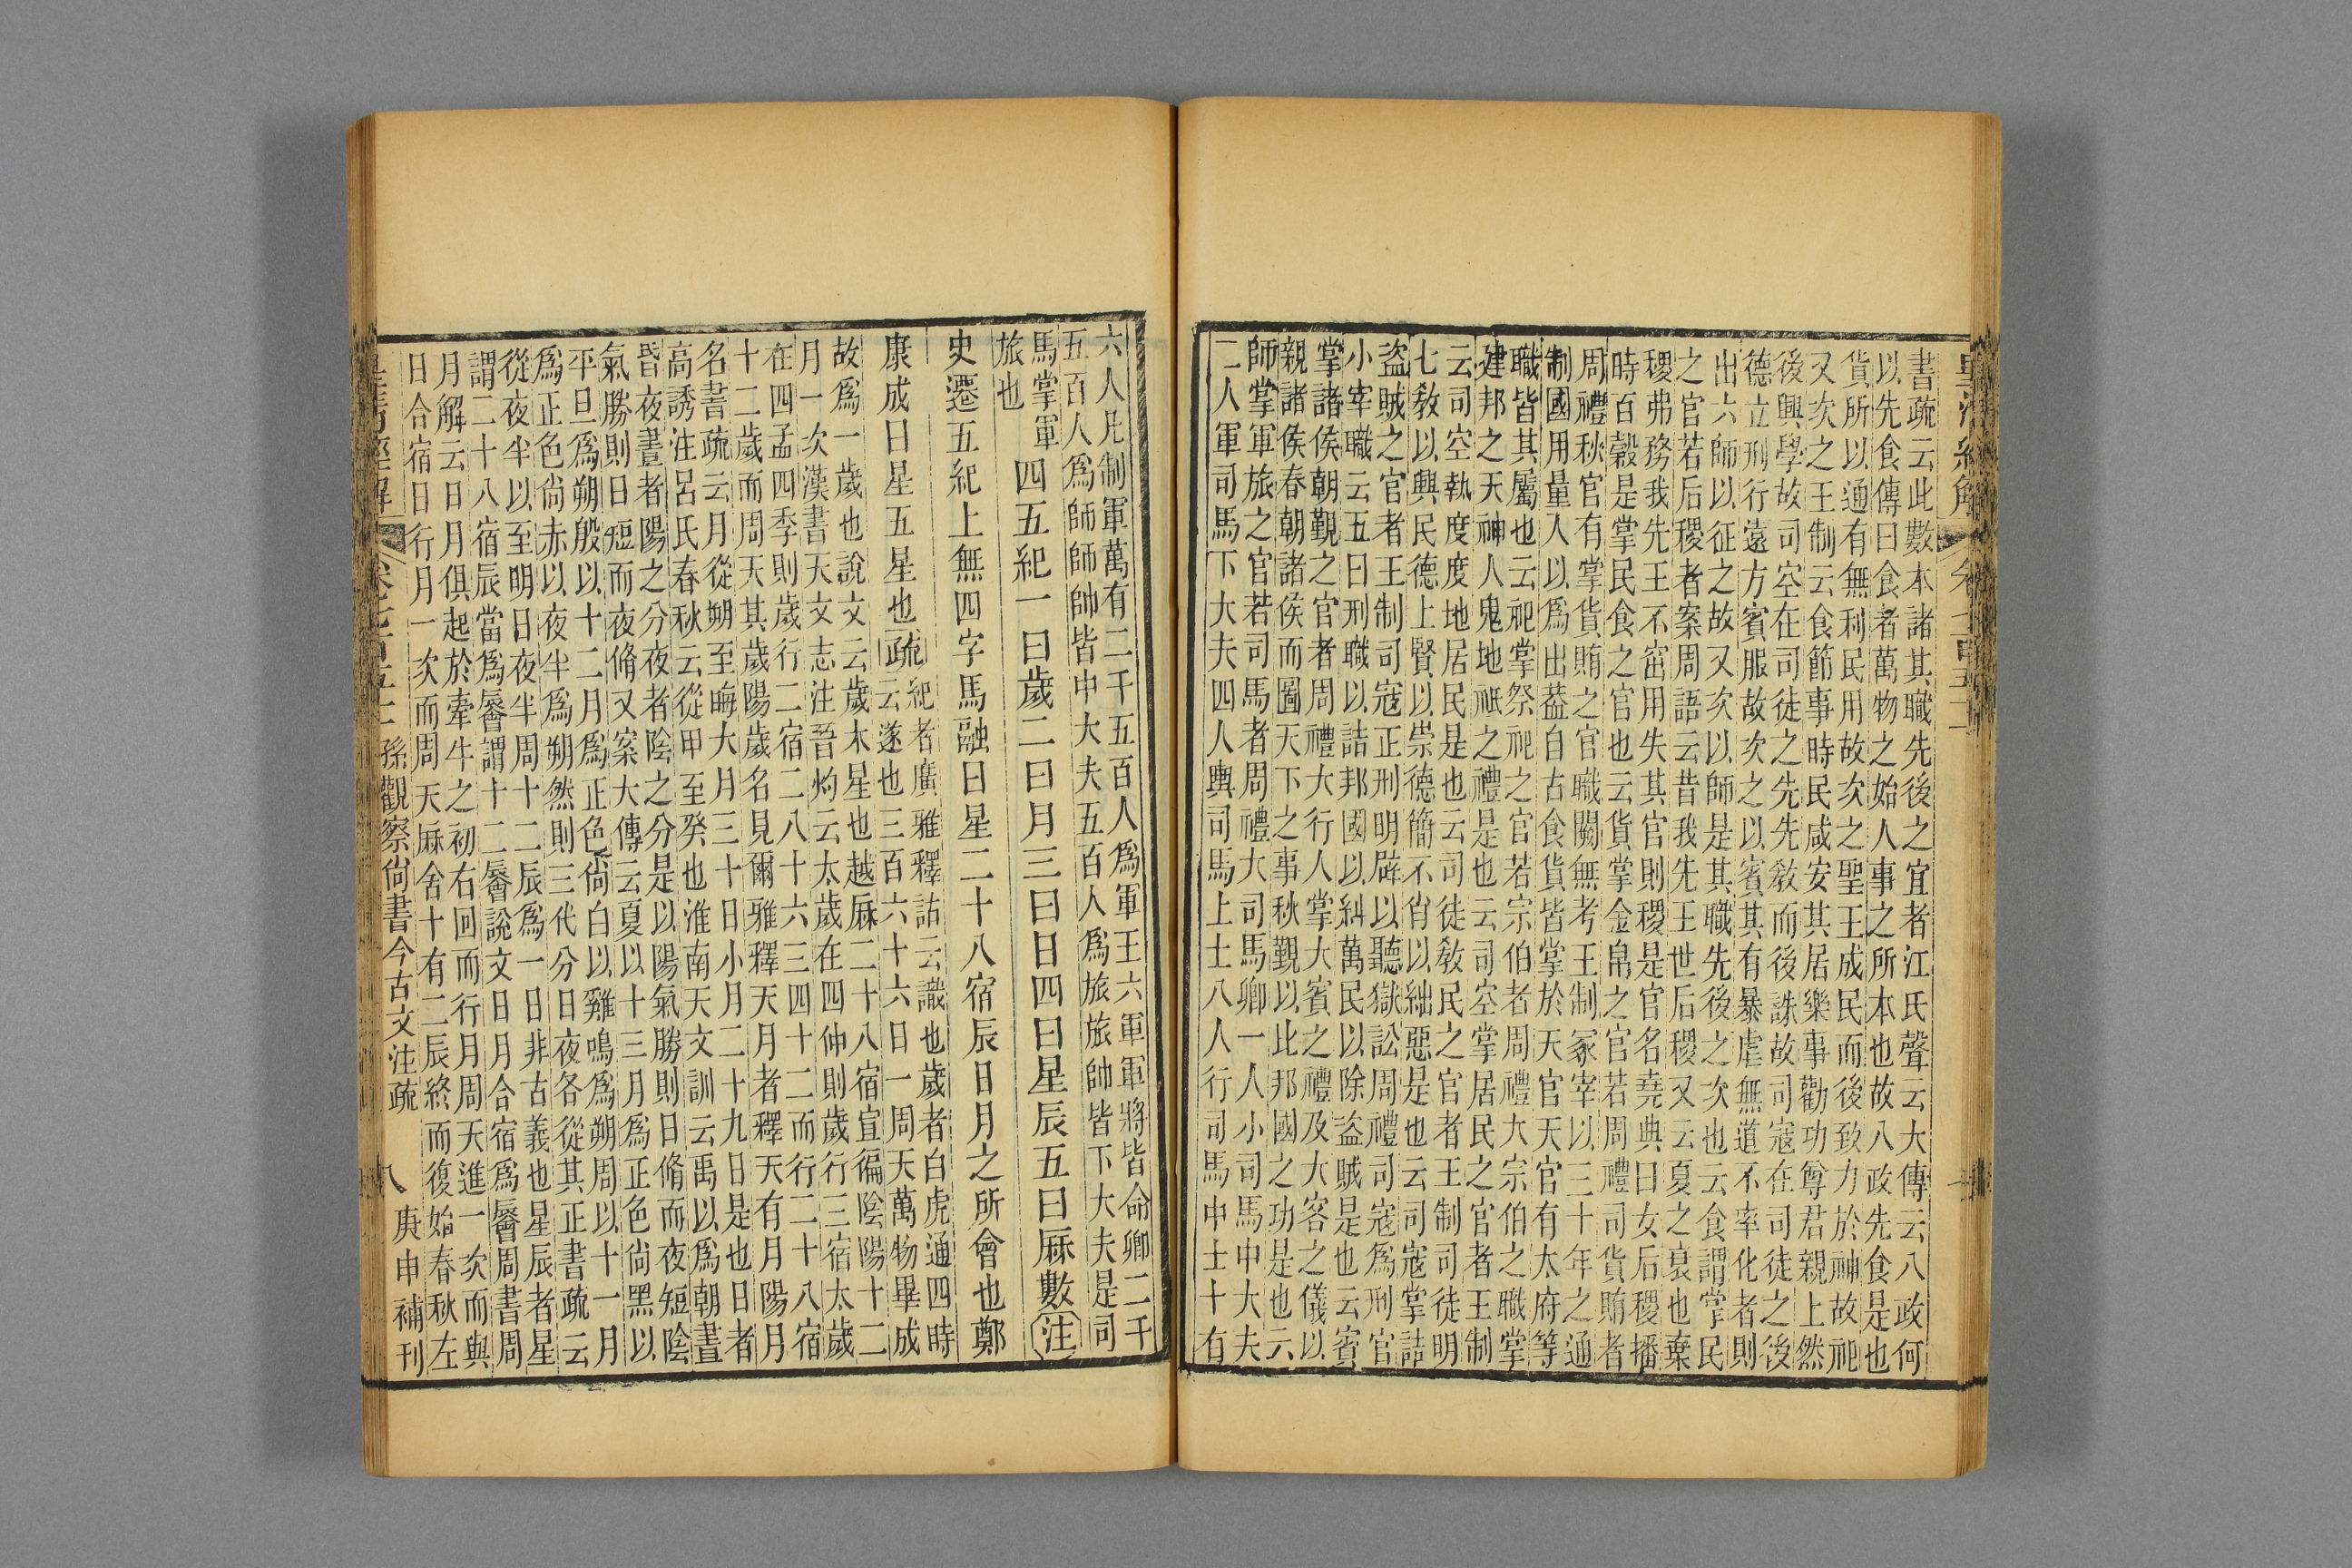 書疏云此數本諸其職先後之宜者江氏聲云大傳云八政何
以先食傳曰食者萬物之始人事之所本也故八政先食是也
貨所以通有無利民用故次之聖王成民而後致力於神故祀
又次之王制云食節事時民咸安其居樂事勸功尊君親上然
後興學故司空在司徒之先先敎而後誅故司寇在司徒之後
德立刑行遠方賓服故次之以賓其有暴虐無道不率化者則
出六師以征之故又次以師是其職先後之次也云食謂掌民
之官若后稷者案周語云昔我先王世后稷又云夏之衰也棄
稷弗務我先王不窋用失其官則稷是官名堯典曰女后稷播
時百穀是掌民食之官也云貨掌金帛之官若周禮司貨賄者
周禮秋官有掌貨賄之官職闕無考王制冢宰以三十年之通
制國用量人以爲出葢自古食貨皆掌於天官天官有太府等
職皆其屬也云祀掌祭祀之官若宗伯者周禮大宗伯之職掌
建邦之天神人鬼地祇之禮是也云司空掌居民之官者王制
云司空執度度地居民是也云司徒敎民之官者王制司徒明
七敎以興民德上賢以崇德簡不肖以絀惡是也云司寇掌詰
盜賊之官者王制司寇正刑明辟以聽獄訟周禮司寇爲刑官
小宰職云五曰刑職以詰邦國以糾萬民以除盜賊是也云賓
掌諸侯朝覲之官者周禮大行人掌大賓之禮及大客之儀以
親諸侯春朝諸侯而圖天下之事秋覲以比邦國之功是也云
師掌軍旅之官若司馬者周禮大司馬卿一人小司馬中大夫
二人軍司馬下大夫四人輿司馬上士八人行司馬中士十有
六人凡制軍萬有二千五百人爲軍王六軍軍將皆命卿二千
五百人爲師師帥皆中大夫五百人爲旅旅帥皆下大夫是司
馬掌軍
旅也
四五紀一曰歲二曰月三曰日四曰星辰五曰厤數注
史遷五紀上無四字馬融曰星二十八宿辰日月之所會也鄭
康成曰星五星也疏
紀者廣雅釋詁云識也歲者白虎通四時
云遂也三百六十六日一周天萬物畢成
故爲一歲也說文云歲木星也越厤二十八宿宣徧陰陽十二
月一次漢書天文志注晉灼云太歲在四仲則歲行三宿太歲
在四孟四季則歲行二宿二八十六三四十二而行二十八宿
十二歲而周天其歲陽歲名見爾雅釋天月者釋天有月陽月
名書疏云月從朔至晦大月三十日小月二十九日是也日者
高誘注呂氏春秋云從甲至癸也淮南天文訓云禹以爲朝晝
昏夜晝者陽之分夜者陰之分是以陽氣勝則日脩而夜短陰
氣勝則日短而夜脩又案大傳云夏以十三月爲正色尙黑以
平旦爲朔殷以十二月爲正色尙白以雞鳴爲朔周以十一月
爲正色尙赤以夜半爲朔然則三代分日夜各從其正書疏云
從夜半以至明日夜半周十二辰爲一日非古義也星辰者星
謂二十八宿辰當爲㫳謂十二㫳說文日月合宿爲㫳周書周
月解云日月俱起於牽牛之初右回而行月周天進一次而與
日合宿日行月一次而周天厤舍十有二辰終而復始春秋左
孫觀察尙書今古文注疏 八 庚申補刊